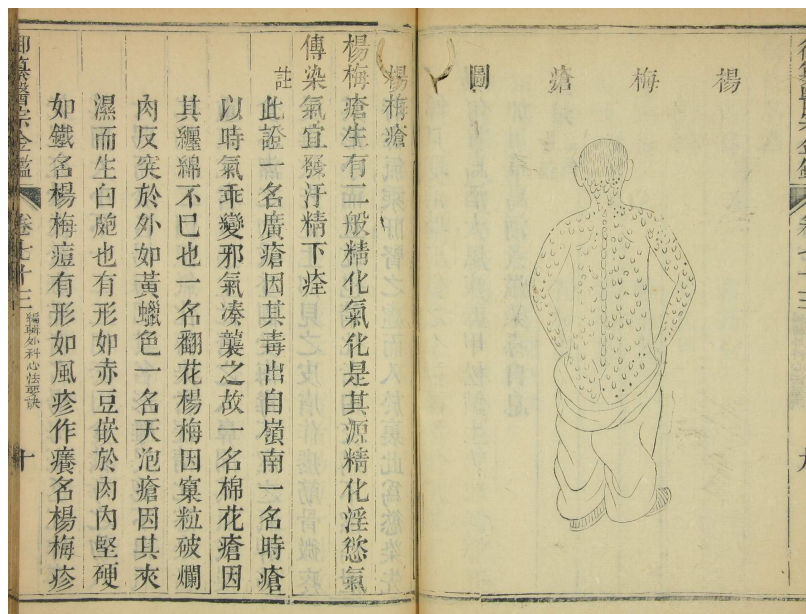 楊梅瘡圖
楊梅瘡
楊梅瘡生有二般精化氣化是其源精化淫慾氣
傳染氣宜發汗精下痊
註
此證一名廣瘡因其毒出自嶺南一名時瘡
以時氣乖變邪氣湊襲之故一名棉花瘡因
其纏綿不已也一名翻花楊梅因窠粒破爛
肉反突於外如黃蠟色一名天泡瘡因其夾
濕而生白皰也有形如赤豆嵌於肉內堅硬
如鐵名楊梅痘有形如風疹作癢名楊梅疹
御纂醫宗金鑑
卷七十三
編輯外科心法要訣
十